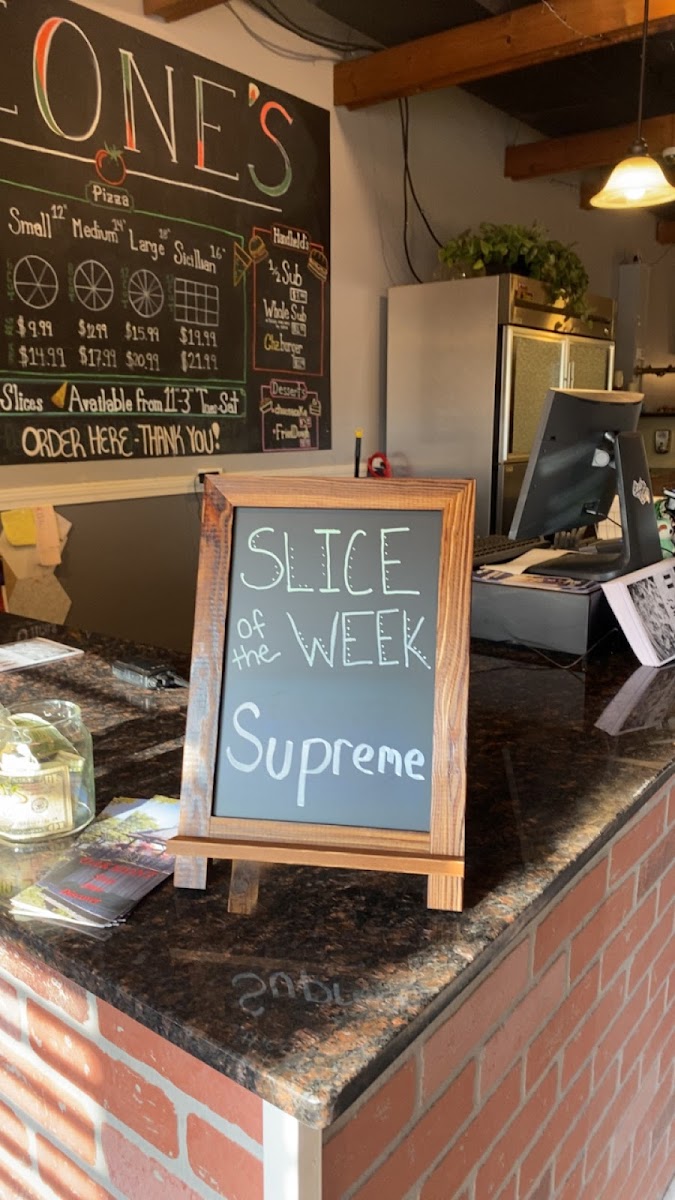 ONE'S
Pizza
Small 12" Medium 14" Large 18" Sicilian 16"
$9.99 $12.99 $15.99 $19.99
$14.99 $17.99 $20.99 $21.99
Slices Available from 11-3 Tues-Sat
ORDER HERE - THANK YOU!
Handheld's
1/2 Sub
Whole Sub
Chz.burger
Dessert's
SLICE
of the WEEK
Supreme